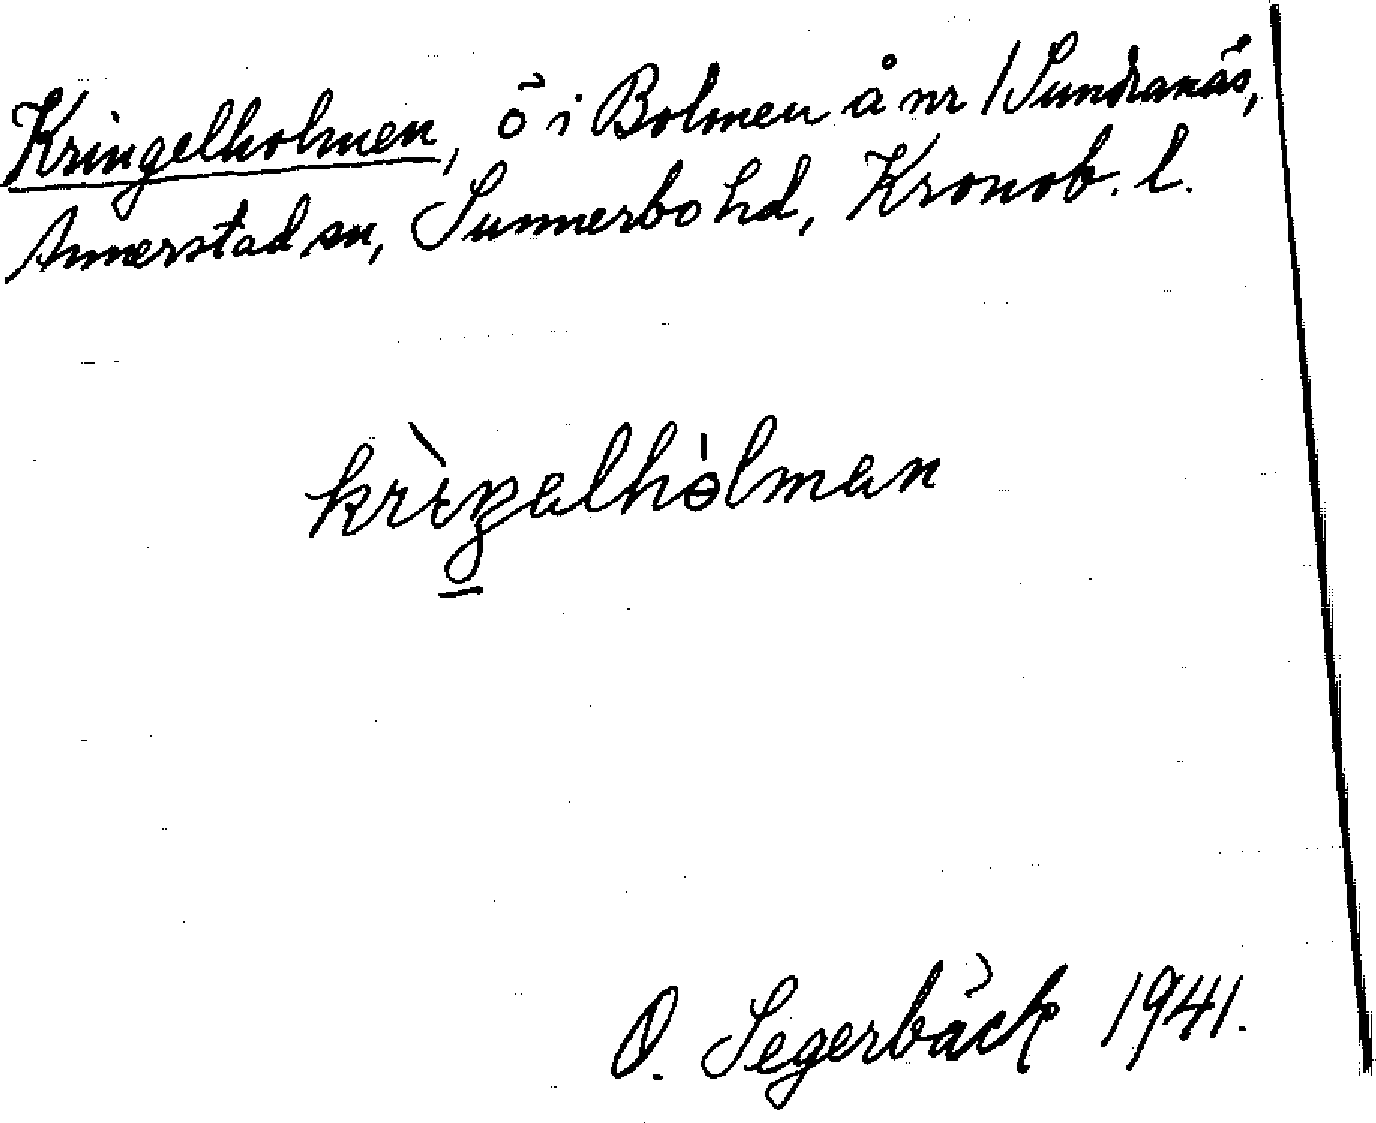 Kringelholmen, ö i Bolmen å nr 1 Sundranäs,
Annerstad sn, Sunnerbo hd, Kronob. l.
krìŋalhòlman
O. Segerbäck 1941.